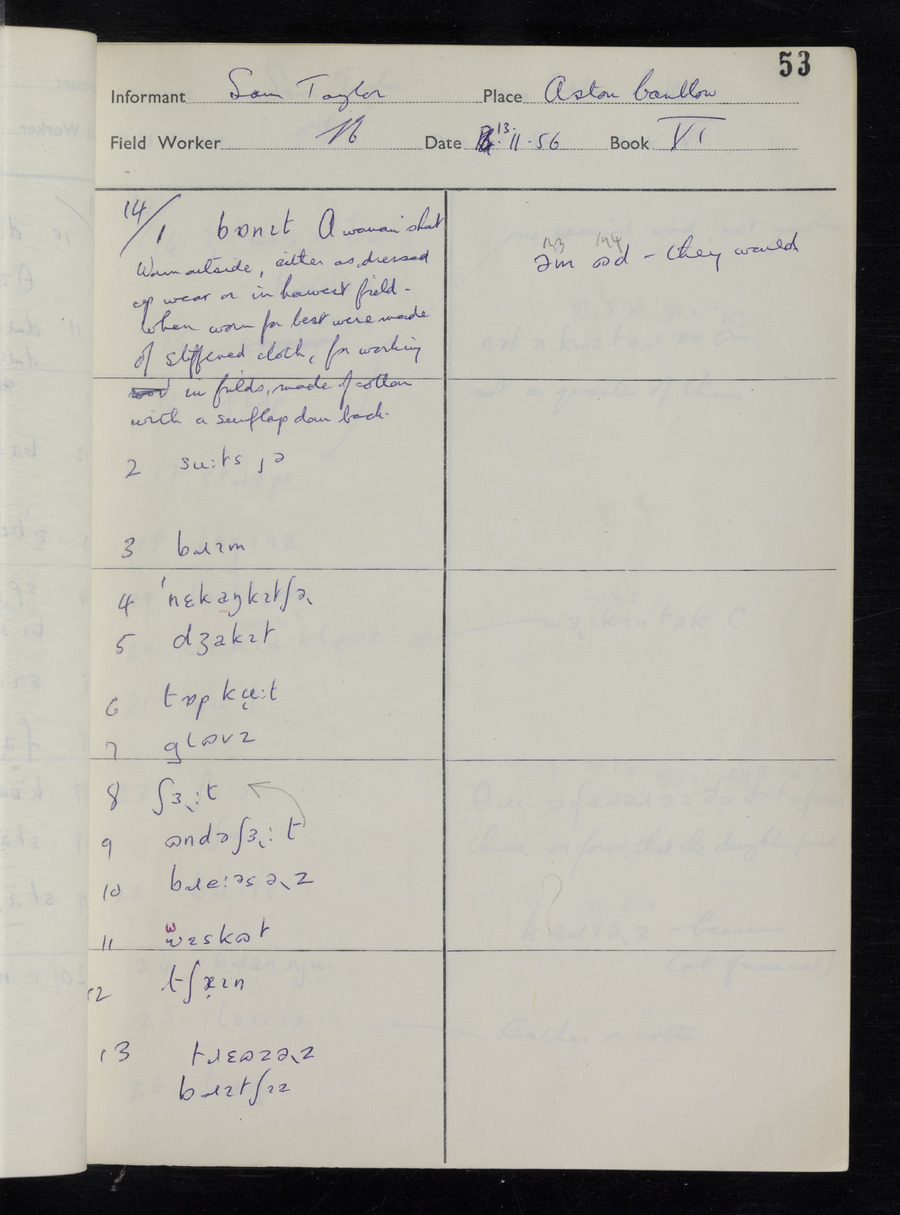 53
Informant Sam Taylor Place Aston Cantlow
Field Worker Date 13. 11 . 56 Book VI
14/
1 bɒnɪt A woman's hat
Worn outside, either as dressed
up wear or in harvest field -
When worn for best were made
of stiffened cloth, for working
in fields, made of cotton
with a sunflap down back.
əm əd - they would
2 su:ts , ə
3 bɹɪm
4 'nɛkaŋkɪtʃə˞
5 dʒakɪt
6 tɒpku̜:t
7 glɷvz
8 ʃɜ˞:t
9 ɷndəʃɜ˞:t
10 bɹe:ɪsə˞z
11 wɛskət
12 tʃæɪn
13 tɹɛɷzə˞z
bɹɪtʃɪz